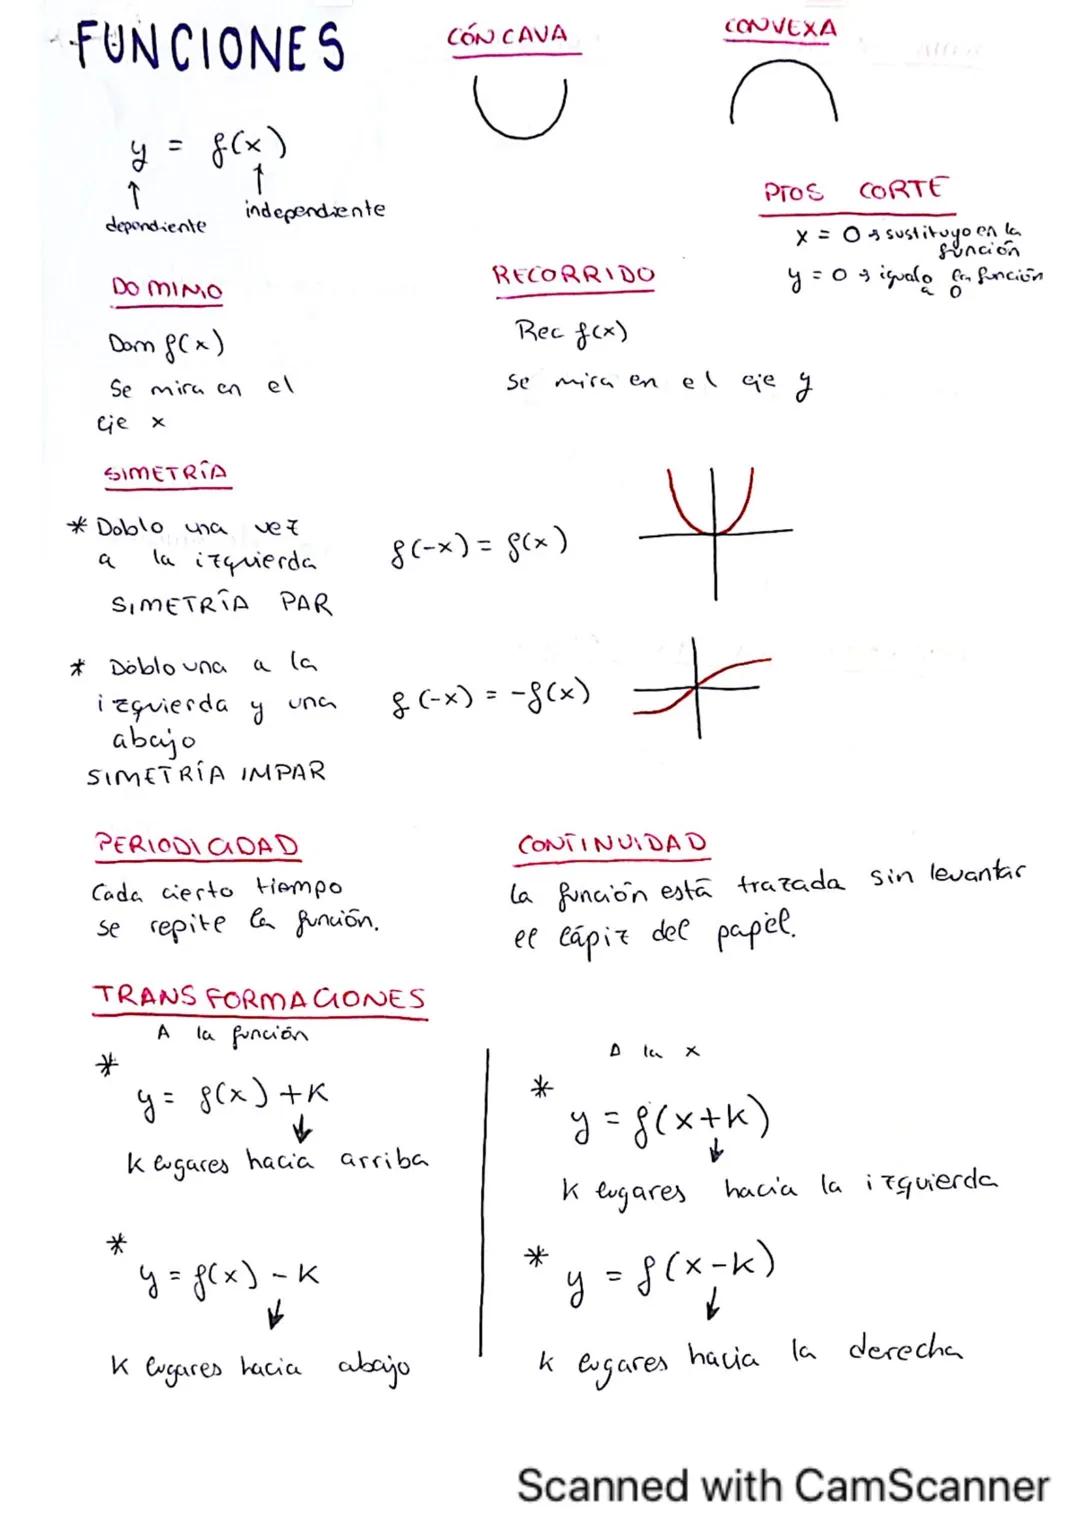 FUNCIONES
CÓNCAVA
CONVEXA
y = f(x)
dependiente
independiente
PTOS CORTE
x = 0 → sustituyo en la función
y = 0 → igualo la función a 0
DOMINIO
Dom f(x)
Se mira en el
eje x
RECORRIDO
Rec f(x)
Se mira en el eje y
SIMETRÍA
* Doblo una vez
a la izquierda
SIMETRÍA PAR
f(-x) = f(x)
* Doblo una a la
izquierda y una
abajo
SIMETRÍA IMPAR
f(-x) = -f(x)
PERIODICIDAD
Cada cierto tiempo
se repite la función.
CONTINUIDAD
La función está trazada sin levantar
el lápiz del papel.
TRANSFORMACIONES
A la función
* y = f(x) + K
K lugares hacia arriba
* y = f(x) - K
K lugares hacia abajo
A la x
* y = f(x+k)
K lugares hacia la izquierda
* y = f(x-k)
k lugares hacia la derecha
Scanned with CamScanner